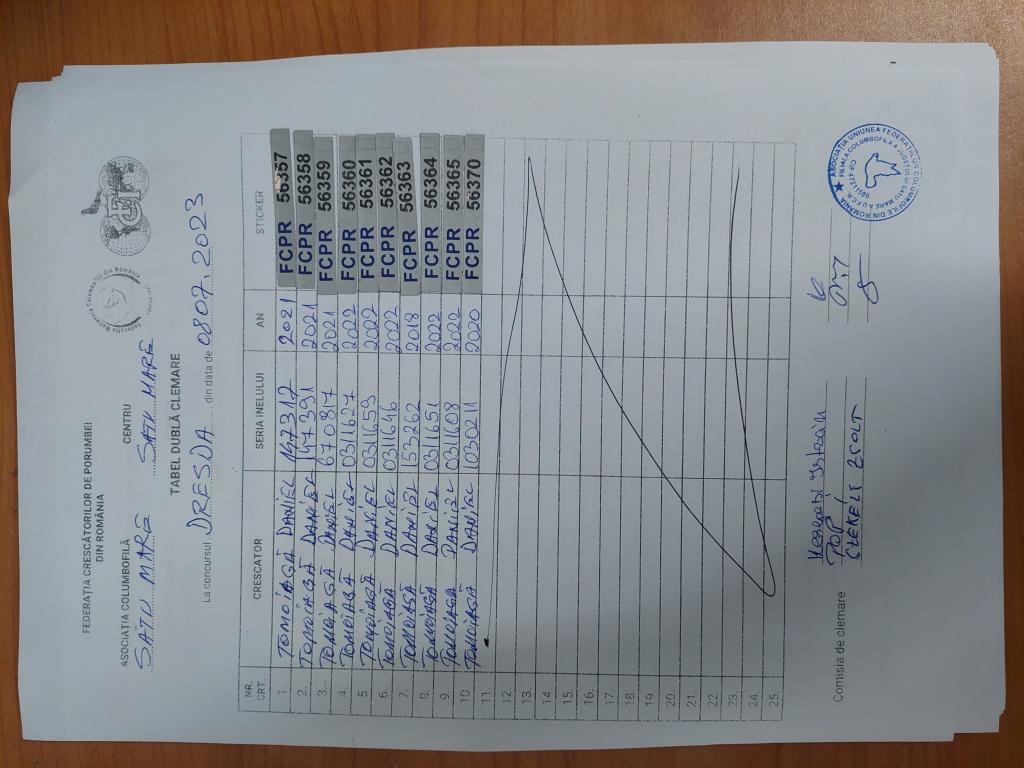 FEDERAȚIA CRESCĂTORILOR DE PORUMBEI
DIN ROMÂNIA
ASOCIAȚIA COLUMBOFILĂ CENTRU
SATU MARE SATU MARE
TABEL DUBLĂ CLEMARE
La concursul DRESDA din data de 08.07.2023
NR. CRT. CRESCATOR SERIA INELULUI AN STICKER
1. TOMOIAGĂ DANIEL 147317 2021 FCPR 56357
2. TOMOIAGĂ DANIEL 147391 2021 FCPR 56358
3. TOMOIAGĂ DANIEL 670817 2021 FCPR 56359
4. TOMOIAGĂ DANIEL 0311627 2022 FCPR 56360
5 TOMOIAGĂ DANIEL 0311659 2022 FCPR 56361
6. TOMOIAGĂ DANIEL 0311646 2022 FCPR 56362
7. TOMOIAGĂ DANIEL 153262 2018 FCPR 56363
8. TOMOIAGĂ DANIEL 0311651 2022 FCPR 56364
9. TOMOIAGĂ DANIEL 0311608 2022 FCPR 56365
10. TOMOIAGĂ DANIEL 1030211 2020 FCPR 56370
11
12
13.
14.
15.
16.
17.
18.
19.
20.
21.
22.
23.
24.
25.
Comisia de clemare
POP
SZEKELE ZSOLT
ASOCIAȚIA UNIUNEA FEDERAȚIILOR COLUMBOFILE DIN ROMÂNIA
FILIALA COLUMBOFILĂ A JUDEȚULUI SATU MARE A U.F.C.R.